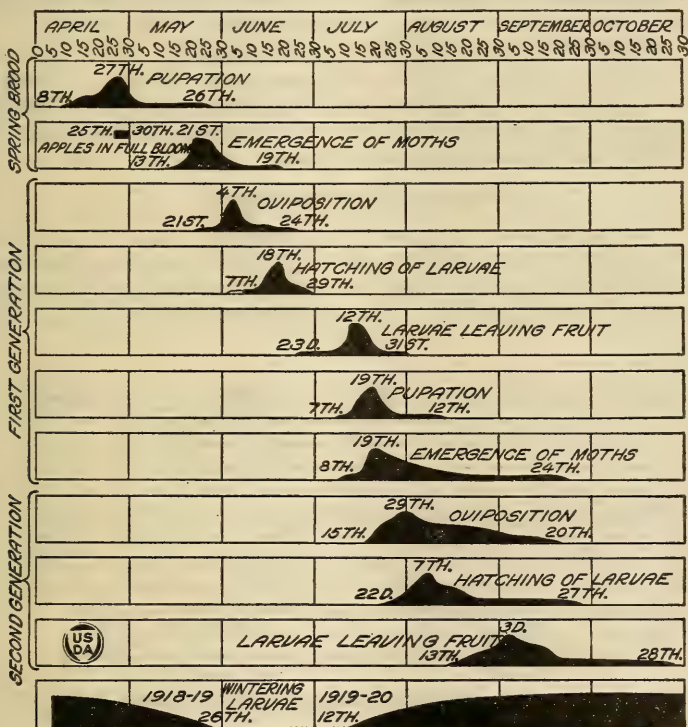 APRIL MAY JUNE JULY AUGUST SEPTEMBER OCTOBER
0 5 10 15 20 25 30 5 10 15 20 25 30 5 10 15 20 25 30 5 10 15 20 25 30 5 10 15 20 25 30 5 10 15 20 25 30 5 10 15 20 25 30
SPRING BROOD
27TH. PUPATION
8TH. 26TH.
25TH. 30TH. 21ST. EMERGENCE OF MOTHS
APPLES IN FULL BLOOM
13TH. 19TH.
FIRST GENERATION
4TH. OVIPOSITION
21ST. 24TH.
18TH. HATCHING OF LARVAE
7TH. 29TH.
12TH. LARVAE LEAVING FRUIT
23D. 31ST.
19TH. PUPATION
7TH. 12TH.
19TH. EMERGENCE OF MOTHS
8TH. 24TH.
SECOND GENERATION
29TH. OVIPOSITION
15TH. 20TH.
7TH. HATCHING OF LARVAE
22D. 27TH.
US DA
LARVAE LEAVING FRUIT 3D.
13TH. 28TH.
1918-19 WINTERING 1919-20
LARVAE
26TH. 12TH.